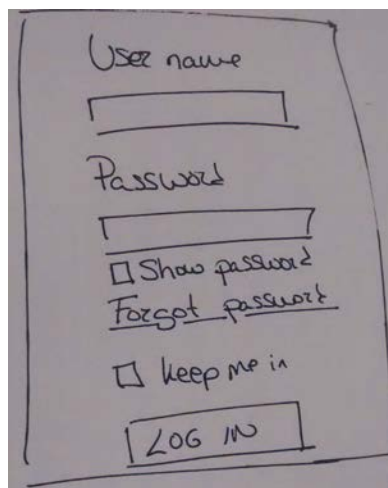 User name
Password
Show password
Forgot password
keep me in
LOG IN